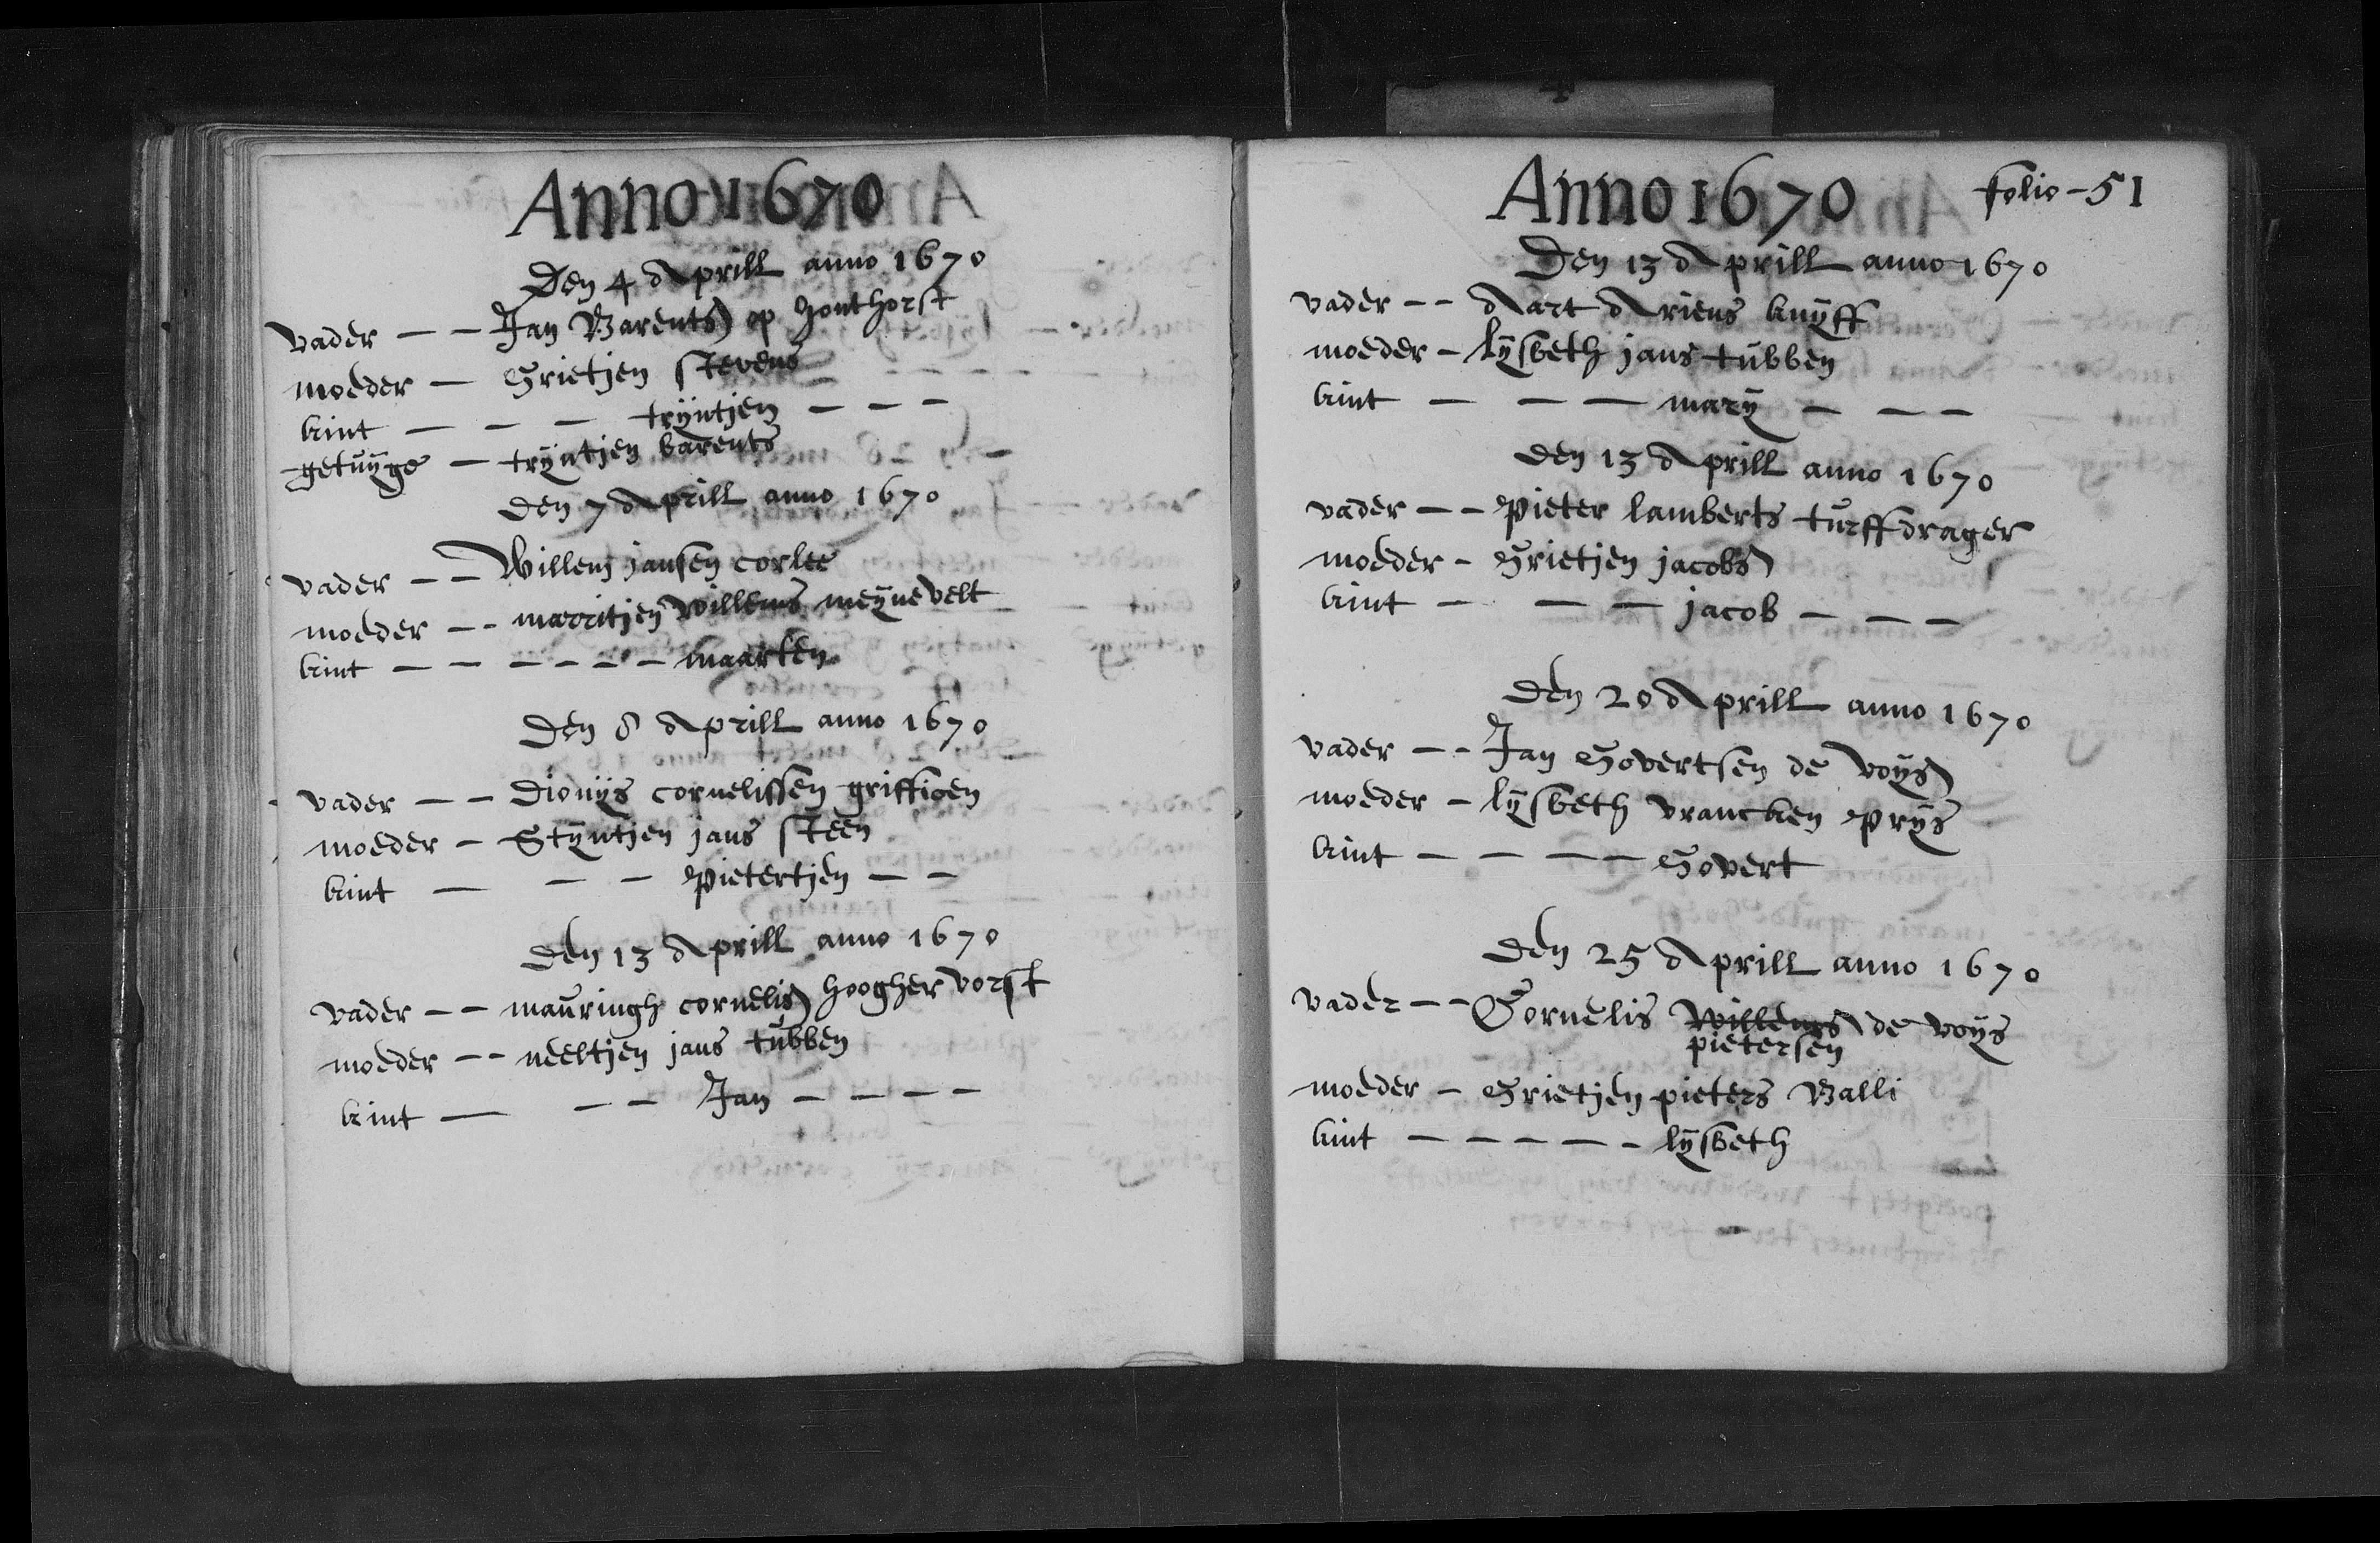 Anno 1670
Den 4 Aprill anno 1670
vader -- Jan Barents op honthorst
moeder - Grietjen stevens
kint - - - trÿntjen - - -
getuÿge - trÿntjen barents
Den 7 Aprill anno 1670
vader -- Willem jansen corlee
moeder -- marritjen Willems meÿnevelt
kint - - - - - - maarten
Den 8 Aprill anno 1670
vader -- Dionÿs cornelissen griffioen
moeder - Stÿntjen jans steen
kint - - - Pietertjen - -
Den 13 Aprill anno 1670
vader -- mauringh cornelis hooghervorst
moeder -- neeltjen jans tubben
kint - - - Jan - - - -
Anno 1670 folio - 51
Den 13 Aprill anno 1670
vader -- Aart Ariens kuÿff
moeder - lÿsbeth jans tubben
kint - - - marÿ - - -
Den 13 Aprill anno 1670
vader -- Pieter lamberts turffdrager
moeder - Grietjen jacobs
kint - - - jacob - - -
Den 20 Aprill anno 1670
vader -- Jan Govertsen de voÿs
moeder - lÿsbeth vrancken Prÿs
kint - - - - Govert
Den 25 Aprill anno 1670
vader -- Cornelis Willems de voÿs
pietersen
moeder - Grietjen pieters Balli
kint - - - - - lÿsbeth